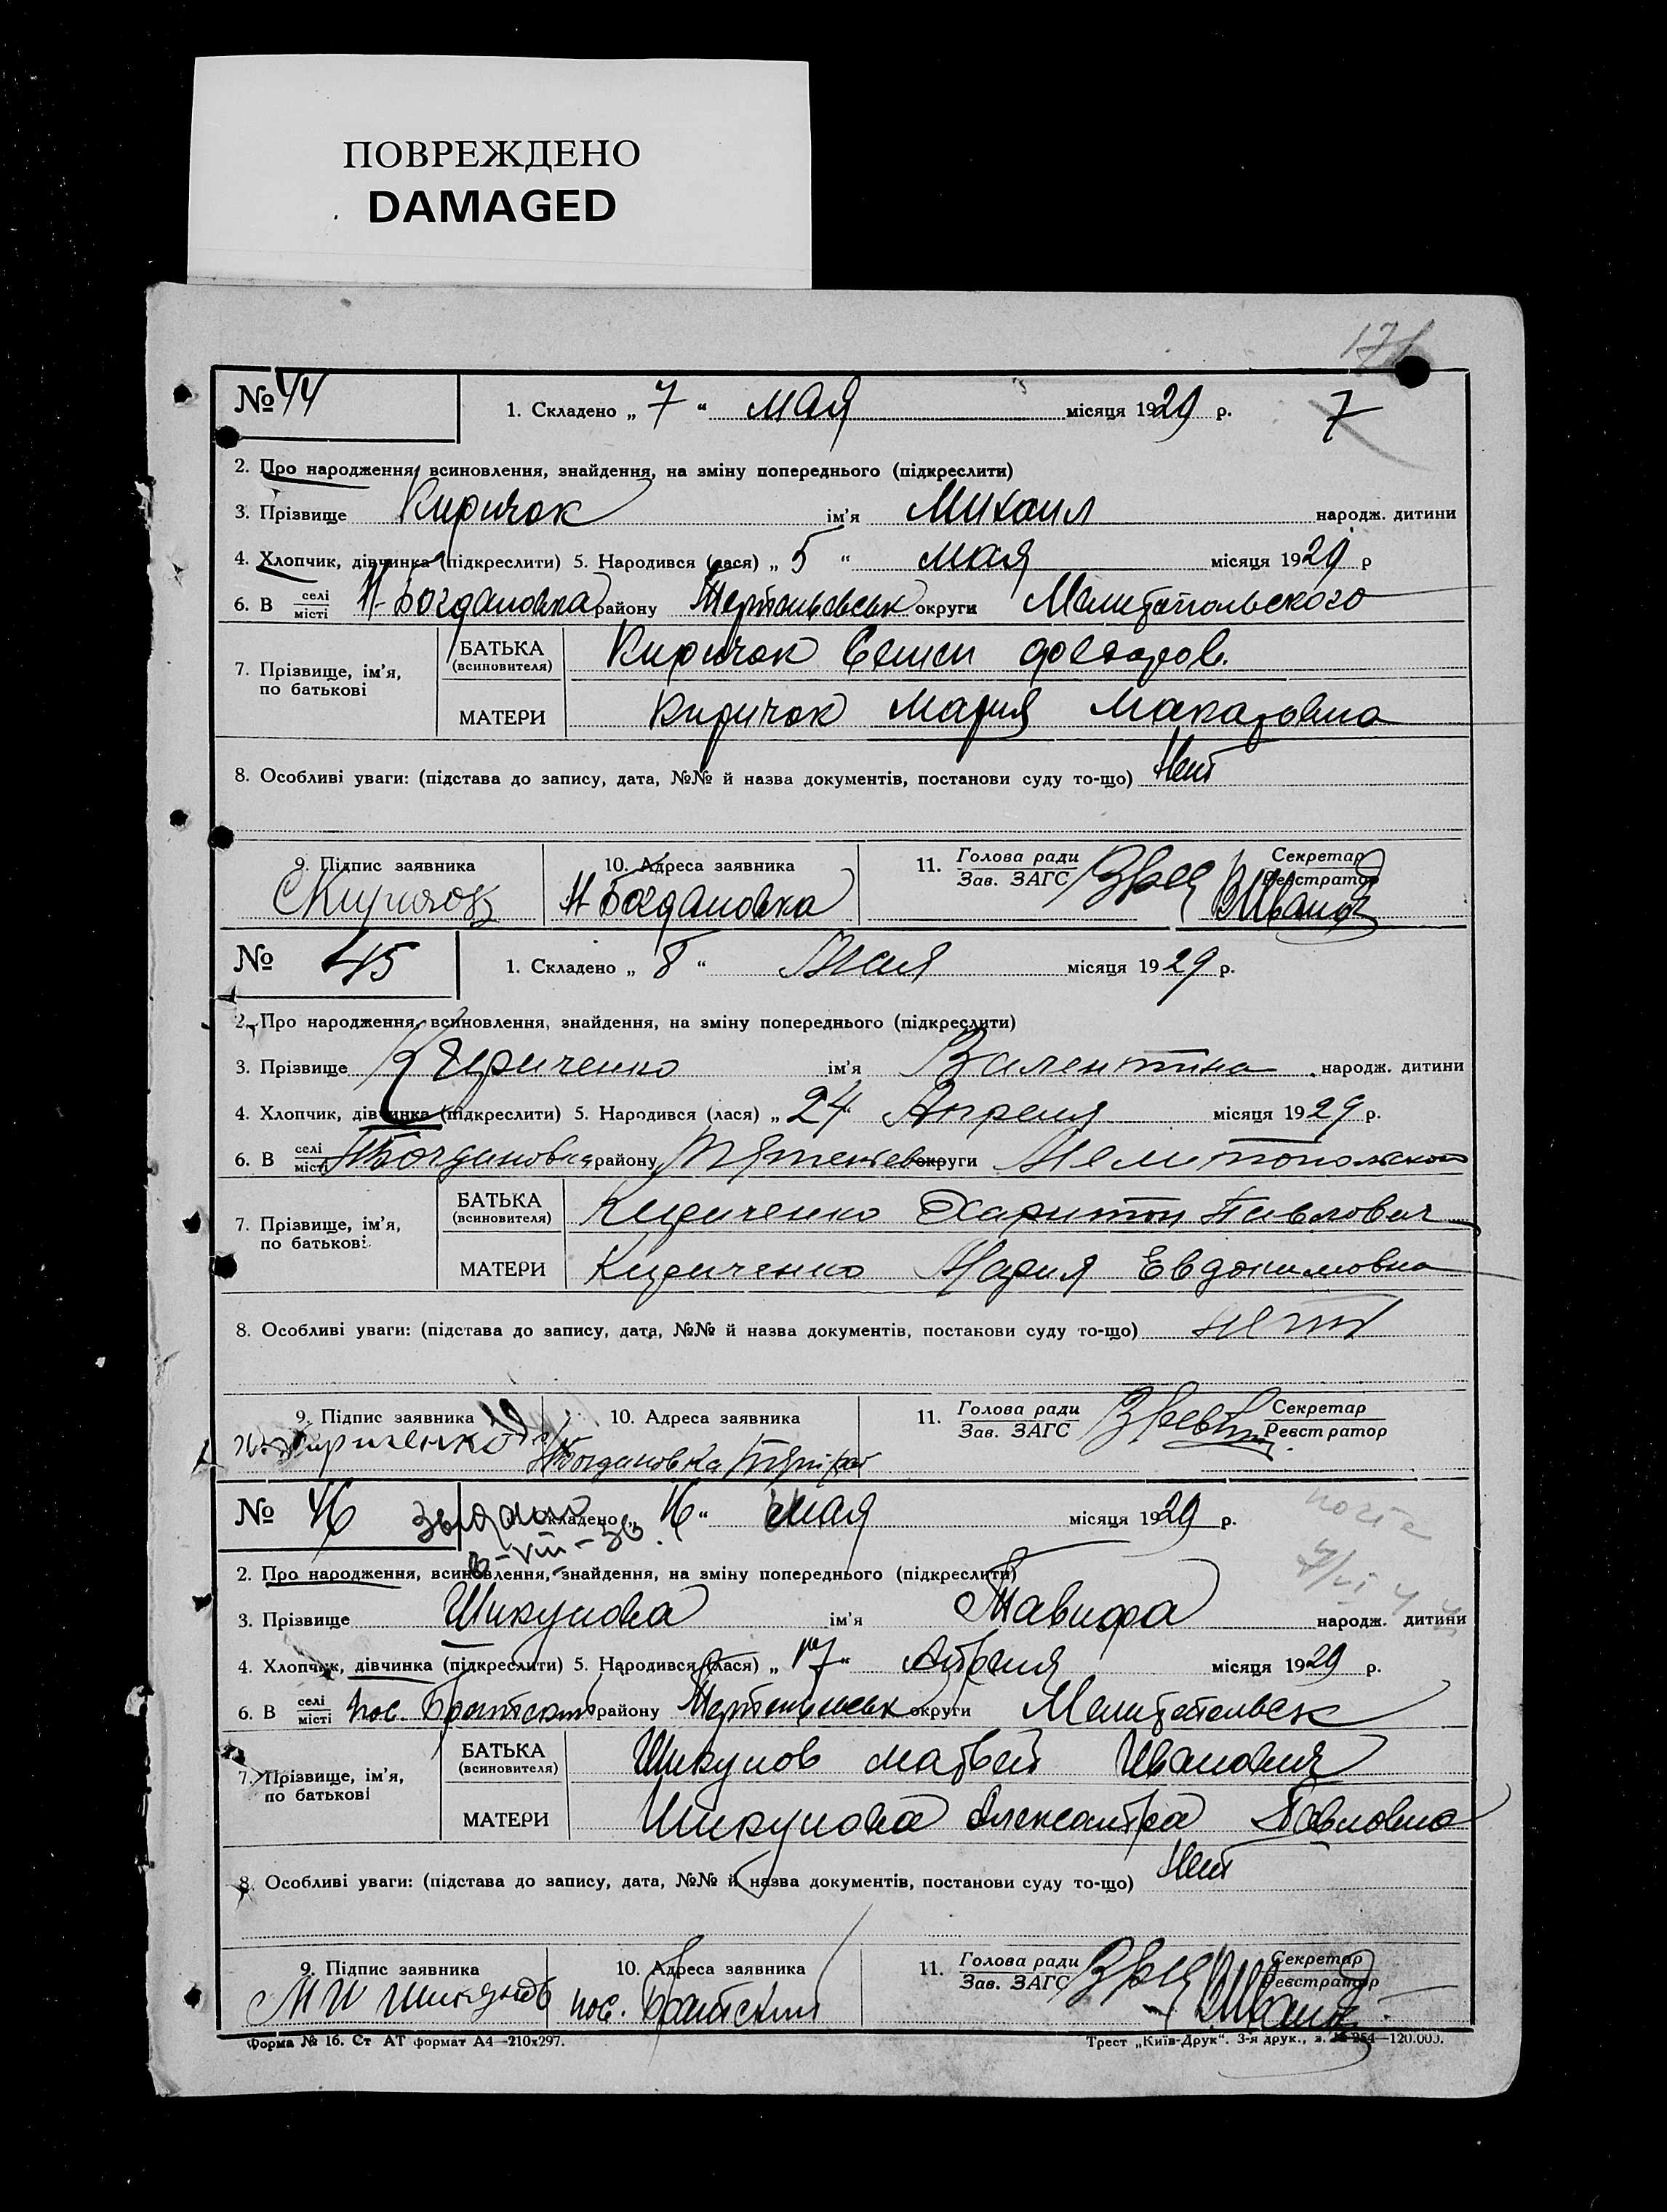 ПОВРЕЖДЕНО
DAMAGED
171
№ 44 1. Складено „ 7 “ мая місяця 1929 р. 7
2. Про народження, всиновлення, знайдення, на зміну попереднього (підкреслити)
3. Прізвище Киричок ім'я Михаил народж. дитини
4. Хлопчик, дівчинка (підкреслити) 5. Народився (лася) „ 5 “ мая місяця 1929 р
6. В селі місті Н-Богдановка району округи Мелитопольского
7. Прізвище, ім'я, по батькові
БАТЬКА (всиновителя) Киричок
МАТЕРИ Киричок Мария Макаровна
8. Особливі уваги: (підстава до запису, дата, №№ й назва документів, постанови суду то-що) Нет
9. Підпис заявника 10. Адреса заявника 11. Голова ради Зав. ЗАГС Секретар Реєстратор
СКиричок Н Богдановка
№ 45 1. Складено „ 8 “ Мая місяця 1929 р.
2. Про народження, всиновлення, знайдення, на зміну попереднього (підкреслити)
3. Прізвище Кириченко ім'я Валентина народж. дитини
4. Хлопчик, дівчинка (підкреслити) 5. Народився (лася) „ 24 “ Апреля місяця 1929 р.
6. В селі місті НБогдановка району округи
7. Прізвище, ім'я, по батькові
БАТЬКА (всиновителя) Кириченко Харитон Павлович
МАТЕРИ Кириченко Мария Евдокимовна
8. Особливі уваги: (підстава до запису, дата, №№ й назва документів, постанови суду то-що) нет
9. Підпис заявника 10. Адреса заявника 11. Голова ради Зав. ЗАГС Секретар Реєстратор
Кириченко НБогдановка
№ 46 1. Складено „ 16 “ мая місяця 1929 р.
2. Про народження, всиновлення, знайдення, на зміну попереднього (підкреслити)
3. Прізвище Шикунова ім'я Тавифа народж. дитини
4. Хлопчик, дівчинка (підкреслити) 5. Народився (лася) „ 17 “ Апреля місяця 1929 р.
6. В селі місті пос. Братский району округи Мелитопольск
7. Прізвище, ім'я, по батькові
БАТЬКА (всиновителя) Шикунов Матвей Иванович
МАТЕРИ Шикунова Александра Павловна
8. Особливі уваги: (підстава до запису, дата, №№ й назва документів, постанови суду то-що) Нет
9. Підпис заявника 10. Адреса заявника 11. Голова ради Зав. ЗАГС Секретар Реєстратор
М И Шикунов пос. Братский
Форма № 16. Ст АТ формат А4—210x297. Трест „Київ-Друк“. 3-я друк., з. № 254—120.000.